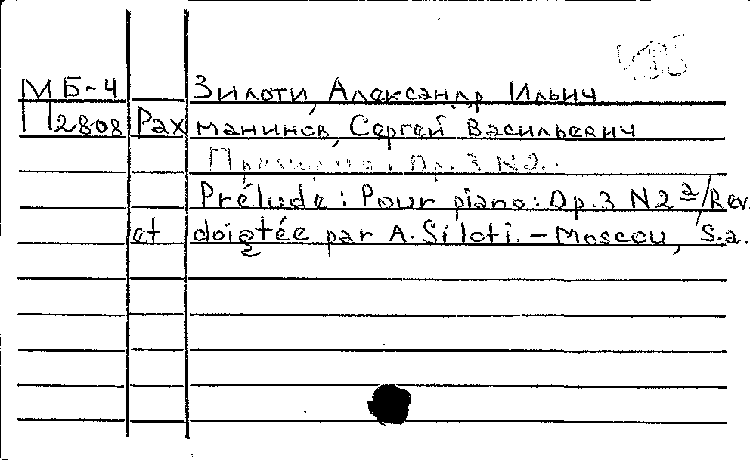 МБ-4 Зилоти, Александр Ильич
П2808 Рахманинов, Сергей Васильевич
Прелюдия: Ор. 3 N2.
Prélude: Pour piano: Op. 3 N2 a/Rev.
et doigtée par A. Siloti. - Moscou, S.a.